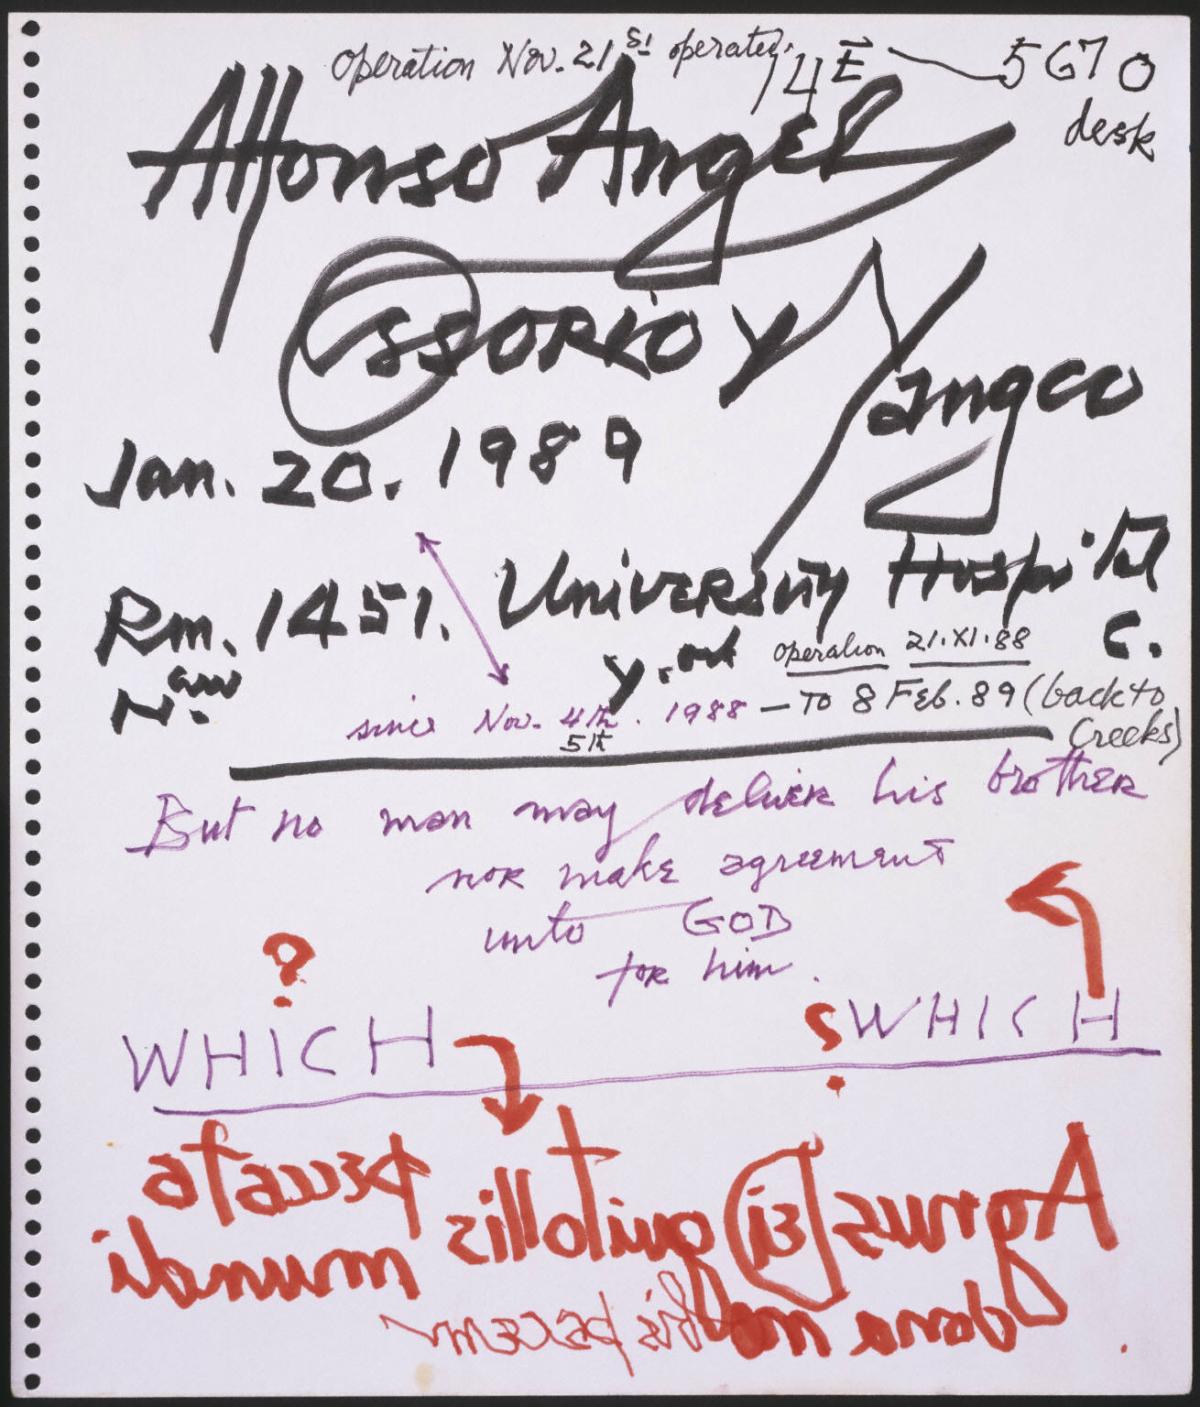 operation Nov. 21st operated. 14E — 5670
desk
Alfonso Angel
Ossorio y Yangco
Jan. 20. 1989
Rm. 1451. University Hospital
N.Y.C.
operation 21.XI.88
since Nov. 4th. 1988 — TO 8 Feb. 89 (back to
5th
Creeks)
But no man may deliver his brother
nor make agreement
unto GOD
for him.
?
WHICH ? WHICH
Agnus Dei qui tollis peccata
mundi
dona nobis pacem